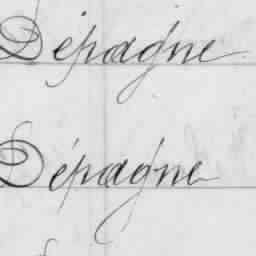 Dépagne
Dépagne